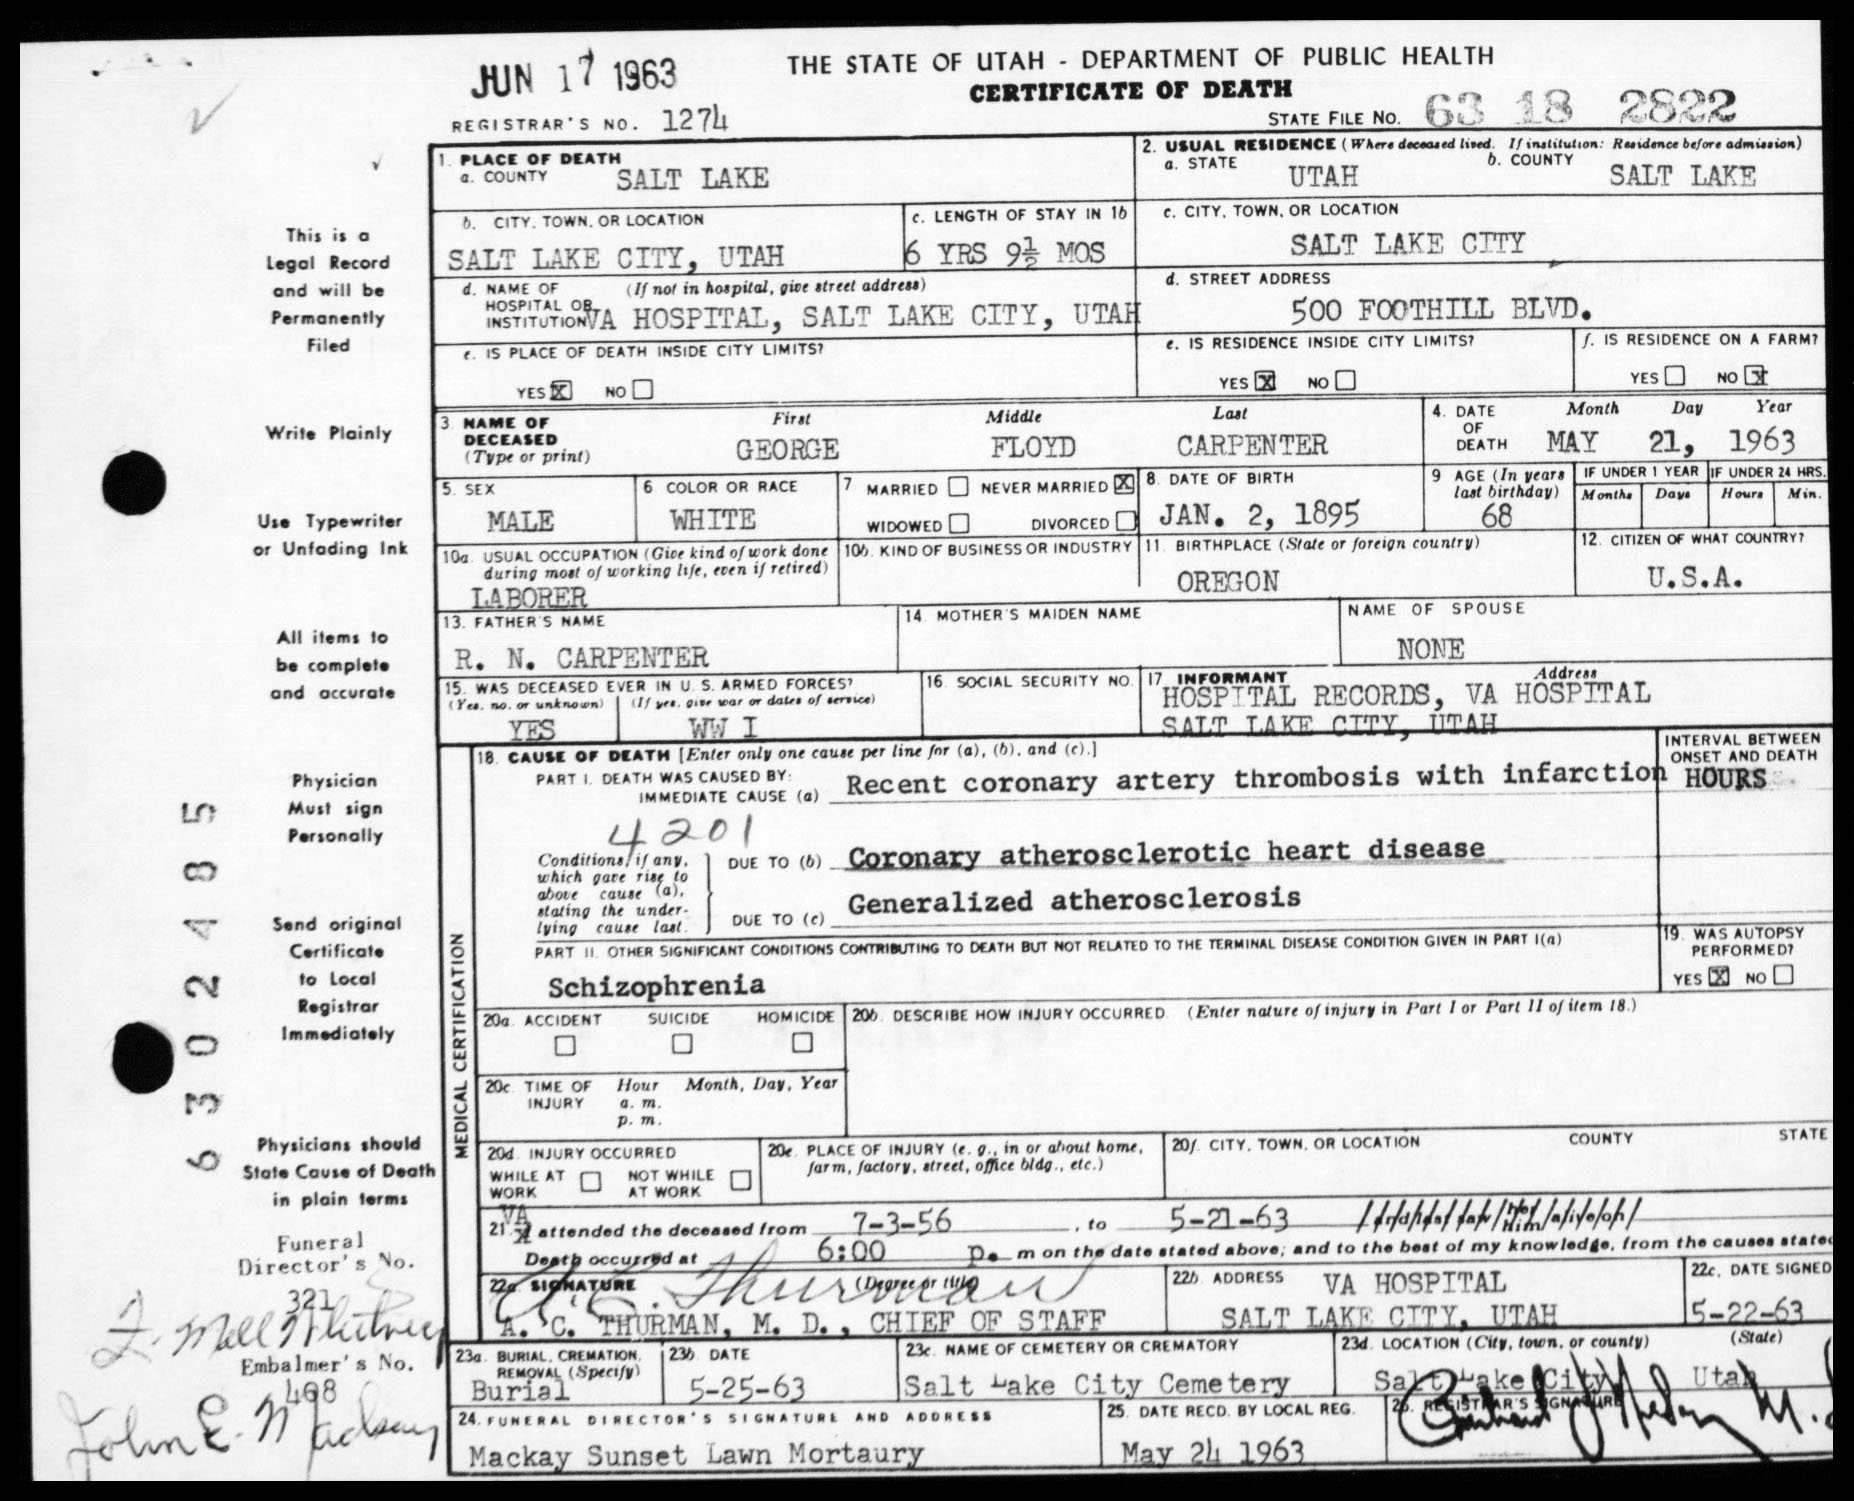 JUN 17 1963
THE STATE OF UTAH - DEPARTMENT OF PUBLIC HEALTH
CERTIFICATE OF DEATH
REGISTRAR'S NO. 1274
STATE FILE NO. 63 18 2822
1. PLACE OF DEATH
a. COUNTY SALT LAKE
2. USUAL RESIDENCE (Where deceased lived. If institution: Residence before admission)
a. STATE UTAH b. COUNTY SALT LAKE
b. CITY, TOWN, OR LOCATION
SALT LAKE CITY, UTAH
c. LENGTH OF STAY IN 1b
6 YRS 9½ MOS
c. CITY, TOWN, OR LOCATION
SALT LAKE CITY
d. NAME OF (If not in hospital, give street address)
HOSPITAL OR
INSTITUTION VA HOSPITAL, SALT LAKE CITY, UTAH
d. STREET ADDRESS
500 FOOTHILL BLVD.
e. IS PLACE OF DEATH INSIDE CITY LIMITS?
YES X NO
e. IS RESIDENCE INSIDE CITY LIMITS?
YES X NO
f. IS RESIDENCE ON A FARM?
YES NO X
3. NAME OF DECEASED (Type or print)
First Middle Last
GEORGE FLOYD CARPENTER
4. DATE OF DEATH
Month Day Year
MAY 21, 1963
5. SEX
MALE
6 COLOR OR RACE
WHITE
7 MARRIED NEVER MARRIED X
WIDOWED DIVORCED
8. DATE OF BIRTH
JAN. 2, 1895
9 AGE (In years last birthday)
68
IF UNDER 1 YEAR
Months Days
IF UNDER 24 HRS.
Hours Min.
10a. USUAL OCCUPATION (Give kind of work done
during most of working life, even if retired)
LABORER
10b. KIND OF BUSINESS OR INDUSTRY
11. BIRTHPLACE (State or foreign country)
OREGON
12. CITIZEN OF WHAT COUNTRY?
U.S.A.
13. FATHER'S NAME
R. N. CARPENTER
14. MOTHER'S MAIDEN NAME
NAME OF SPOUSE
NONE
15. WAS DECEASED EVER IN U. S. ARMED FORCES?
(Yes, no, or unknown) (If yes, give war or dates of service)
YES WW I
16. SOCIAL SECURITY NO.
17. INFORMANT Address
HOSPITAL RECORDS, VA HOSPITAL
SALT LAKE CITY, UTAH
MEDICAL CERTIFICATION
18. CAUSE OF DEATH [Enter only one cause per line for (a), (b), and (c).]
PART I. DEATH WAS CAUSED BY:
IMMEDIATE CAUSE (a) Recent coronary artery thrombosis with infarction
INTERVAL BETWEEN
ONSET AND DEATH
HOURS
4201
Conditions, if any,
which gave rise to
above cause (a),
stating the under-
lying cause last.
DUE TO (b) Coronary atherosclerotic heart disease
DUE TO (c) Generalized atherosclerosis
PART II. OTHER SIGNIFICANT CONDITIONS CONTRIBUTING TO DEATH BUT NOT RELATED TO THE TERMINAL DISEASE CONDITION GIVEN IN PART I(a)
Schizophrenia
19. WAS AUTOPSY
PERFORMED?
YES X NO
20a. ACCIDENT SUICIDE HOMICIDE
20b. DESCRIBE HOW INJURY OCCURRED. (Enter nature of injury in Part I or Part II of item 18.)
20c. TIME OF INJURY
Hour Month, Day, Year
a. m.
p. m.
20d. INJURY OCCURRED
WHILE AT WORK NOT WHILE AT WORK
20e. PLACE OF INJURY (e. g., in or about home,
farm, factory, street, office bldg., etc.)
20f. CITY, TOWN, OR LOCATION COUNTY STATE
21. VA attended the deceased from 7-3-56, to 5-21-63
Death occurred at 6:00 p. m on the date stated above; and to the best of my knowledge, from the causes stated
22a. SIGNATURE (Degree or title)
A. C. Thurman
A. C. THURMAN, M. D., CHIEF OF STAFF
22b. ADDRESS VA HOSPITAL
SALT LAKE CITY, UTAH
22c. DATE SIGNED
5-22-63
23a. BURIAL, CREMATION,
REMOVAL (Specify)
Burial
23b DATE
5-25-63
23c. NAME OF CEMETERY OR CREMATORY
Salt Lake City Cemetery
23d. LOCATION (City, town, or county) (State)
Salt Lake City Utah
24. FUNERAL DIRECTOR'S SIGNATURE AND ADDRESS
Mackay Sunset Lawn Mortaury
25. DATE RECD. BY LOCAL REG.
May 24 1963
26. REGISTRAR'S SIGNATURE
This is a
Legal Record
and will be
Permanently
Filed
Write Plainly
Use Typewriter
or Unfading Ink
All items to
be complete
and accurate
Physician
Must sign
Personally
Send original
Certificate
to Local
Registrar
Immediately
Physicians should
State Cause of Death
in plain terms
6302485
Funeral
Director's No.
321
Embalmer's No.
408
John E. Mackay